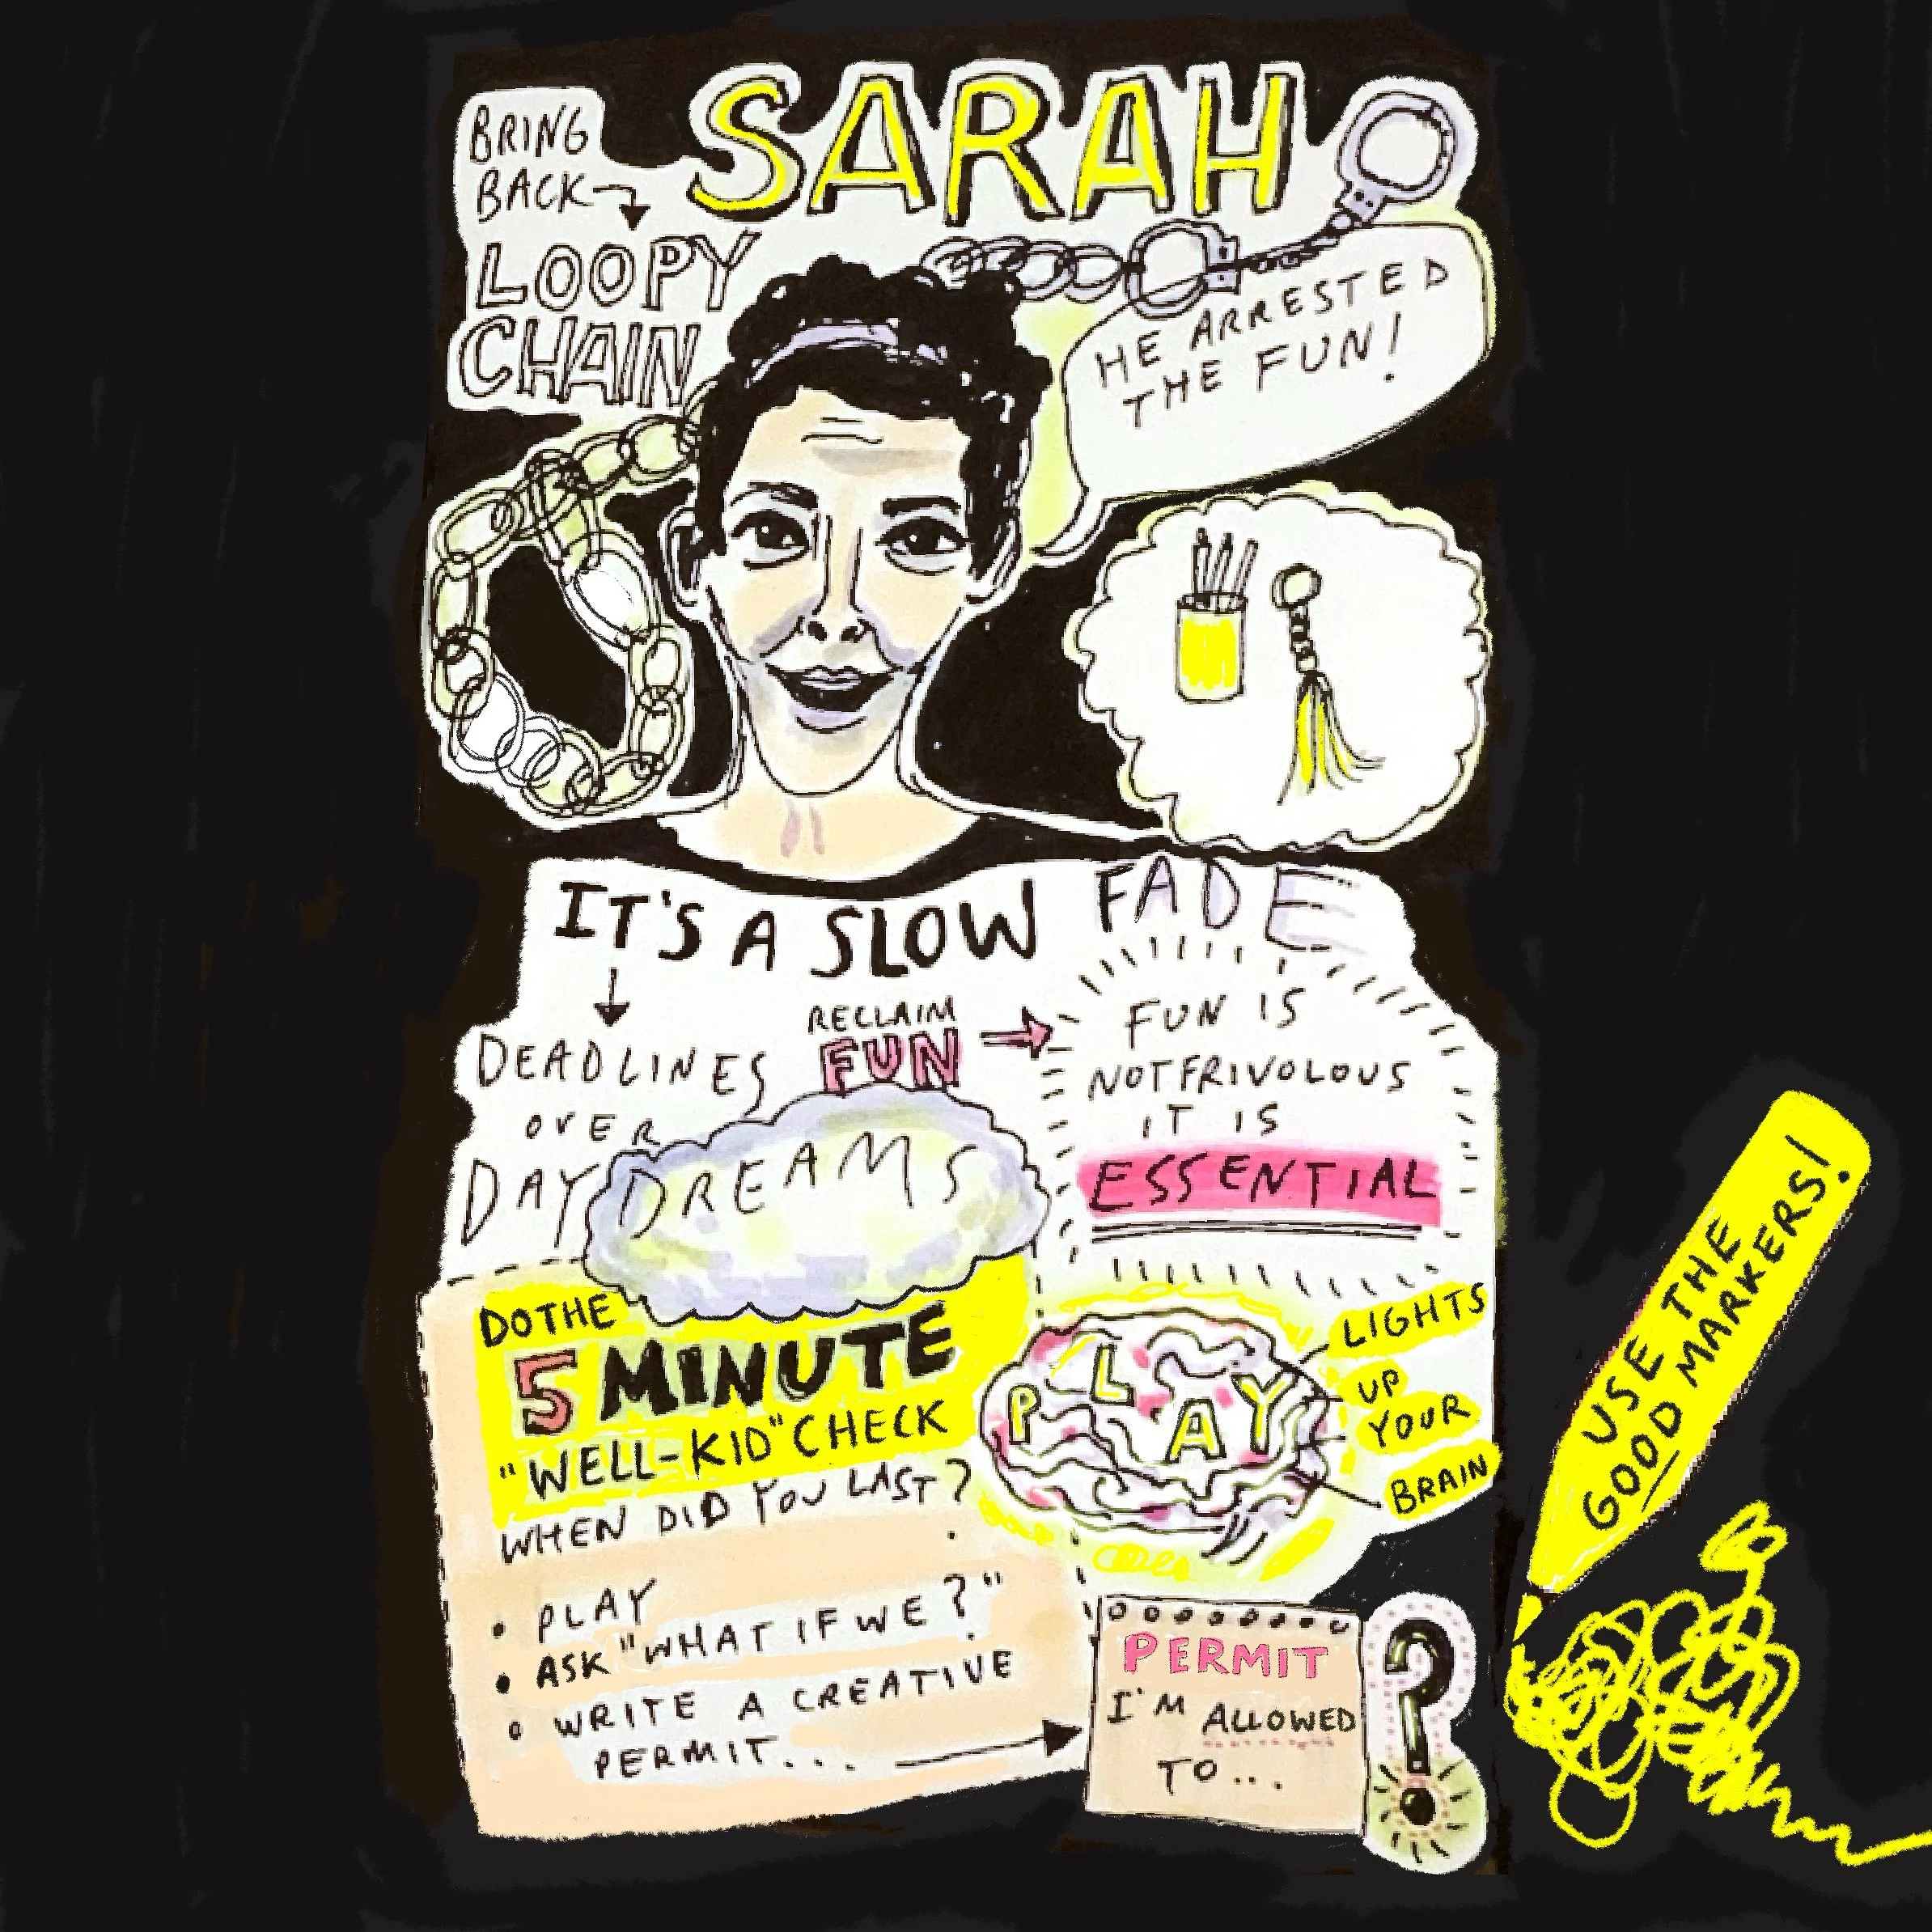 SARAH
BRING
BACK
LOOPY
CHAIN
HE ARRESTED
THE FUN!
IT'S A SLOW FADE
DEADLINES
OVER
DAY DREAMS
RECLAIM
FUN
FUN IS
NOT FRIVOLOUS
IT IS
ESSENTIAL
DO THE
5 MINUTE
"WELL-KID" CHECK
WHEN DID YOU LAST?
• PLAY
• ASK "WHAT IF WE?"
• WRITE A CREATIVE
PERMIT...
PLAY
LIGHTS
UP
YOUR
BRAIN
PERMIT
I'M ALLOWED
TO...
?
USE THE
GOOD MARKERS!